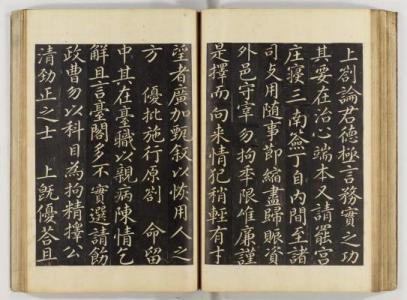 上劄論君德極言務實之功
其要在治心端本又請罷宮
庄寢三南簽丁自內間至諸
司支用隨事節縮盡歸賑資
外邑守宰勿拘年限唯廉謹
是擇而向来情犯稍輕有才
望者廣加甄叙以恢用人之
方 優批施行原劄 命留
中其在臺職以親病陳情乞
解且言臺閣多不實選請飭
政曹勿以科目為拘精擇公
清勁正之士 上旣優答且